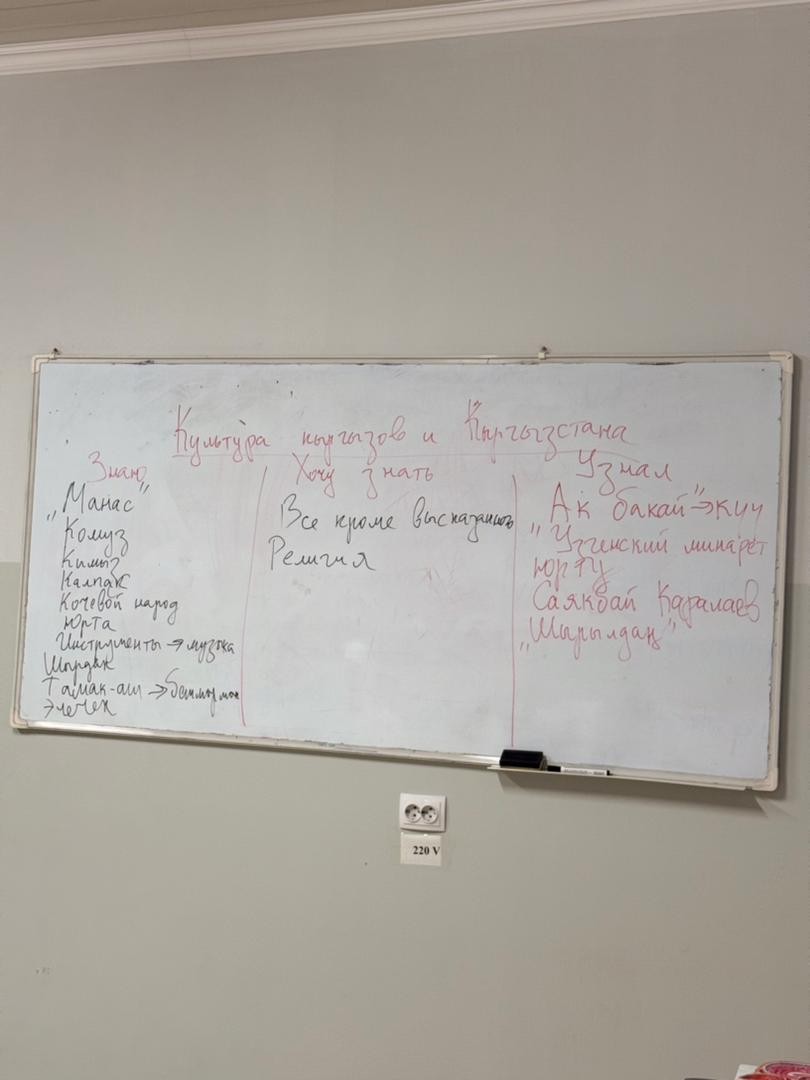 Культура кыргызов и Кыргызстана
Знаю
"Манас"
Комуз
Кымыз
Калпак
Кочевой народ
Юрта
Инструменты → музыка
Шырдак
Тамак-аш →
Элечек
Хочу знать
Все кроме высказанного
Религия
Узнал
Ак бакай" → күү
"Узгенский минарет
юрту
Саякбай Каралаев
"Шырылдаң"
220 V